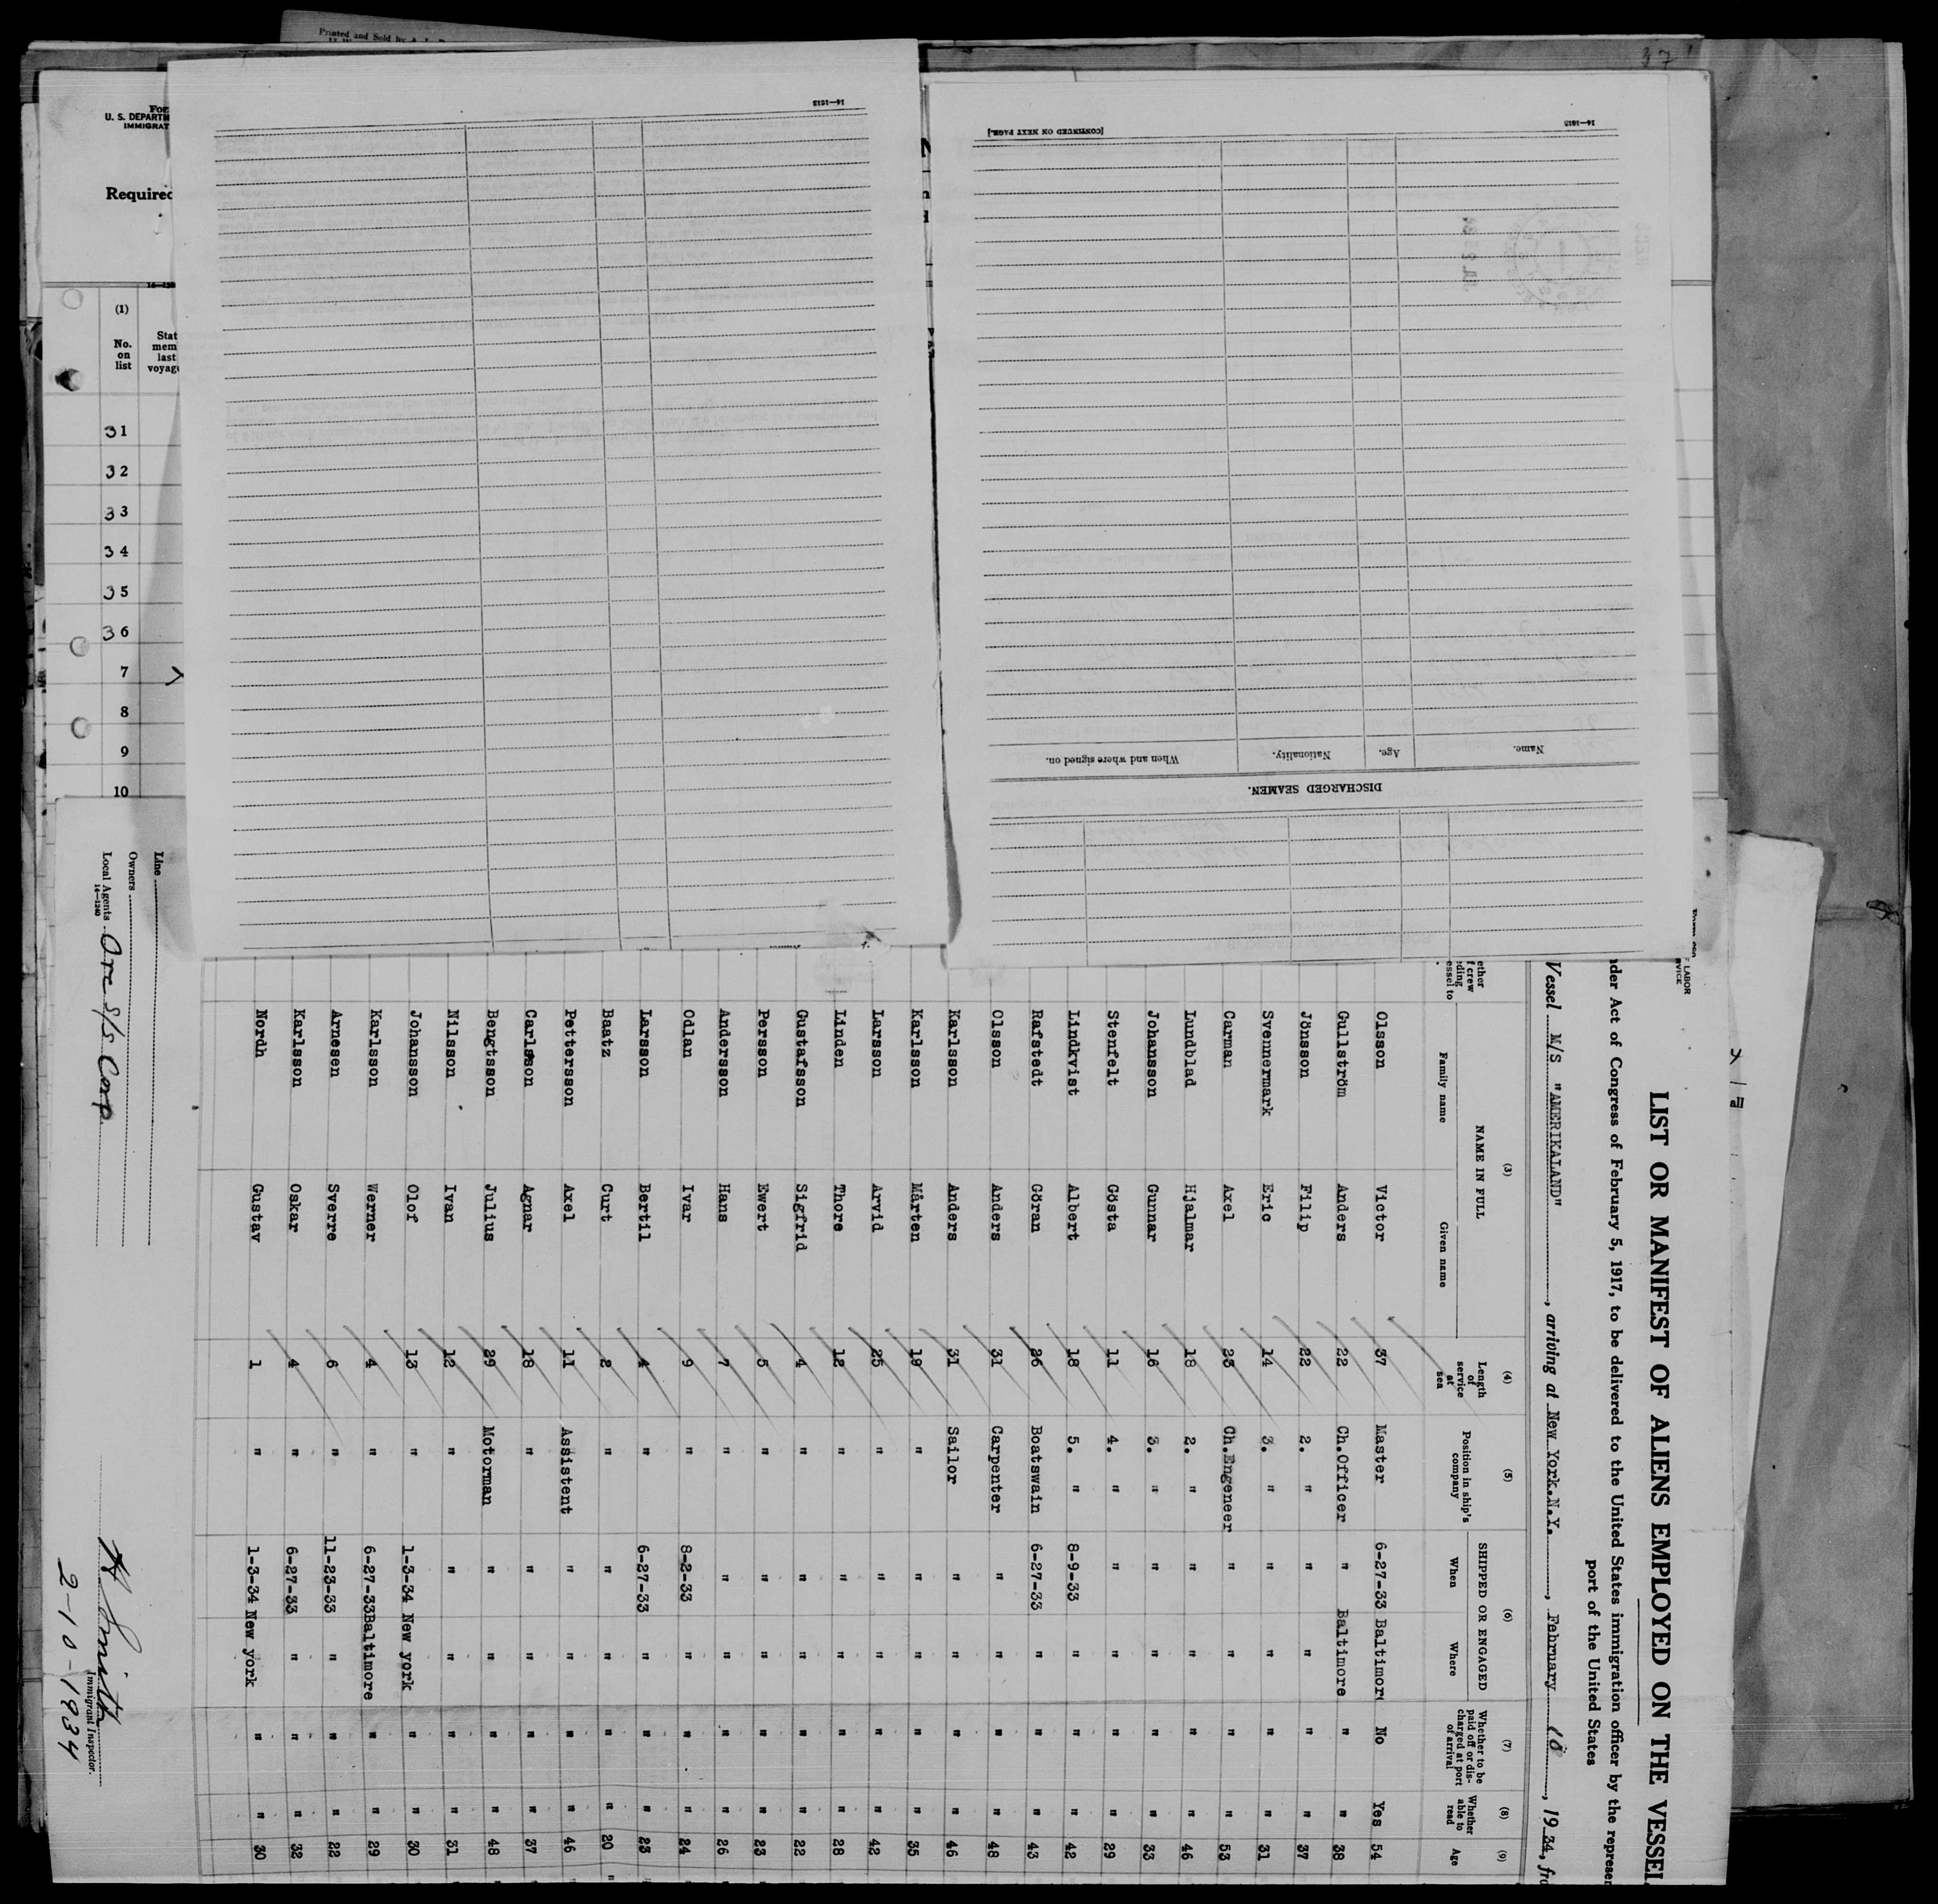 Printed and Sold by
U. S. DEPARTM
IMMIGRAT
Required
(1)
No.
on
list
Stat
mem
last
voyage
31
32
33
34
35
36
7
8
9
10
14—1015
[CONTINUED ON NEXT PAGE.]
14—1015
When and where signed on.
Nationality.
Age.
Name.
DISCHARGED SEAMEN.
LIST OR MANIFEST OF ALIENS EMPLOYED ON THE VESSEL
nder Act of Congress of February 5, 1917, to be delivered to the United States immigration officer by the represen
port of the United States
Vessel M/S "AMERIKALAND", arriving at New York.N.Y., February 10, 1934, fro
(3) (4) (5) (6) (7) (8) (9)
NAME IN FULL
Family name Given name
Length of service at sea
Position in ship's company
SHIPPED OR ENGAGED
When Where
Whether to be paid off or discharged at port of arrival
Whether able to read
Age
Olsson Victor 37 Master 6-27-33 Baltimore No Yes 54
Gullström Anders 22 Ch.Officer " Baltimore " " 38
Jönsson Filip 22 2. " " " " " 37
Svennermark Eric 14 3. " " " " " 31
Carman Axel 23 Ch.Engeneer " " " " 53
Lundblad Hjalmar 18 2. " " " " " 46
Johansson Gunnar 16 3. " " " " " 33
Stenfelt Gösta 11 4. " " " " " 29
Lindkvist Albert 18 5. " 8-9-33 " " " 42
Rafstedt Göran 26 Boatswain 6-27-33 " " " 43
Olsson Anders 31 Carpenter " " " " 48
Karlsson Anders 31 Sailor " " " " 46
Karlsson Mårten 19 " " " " " 35
Larsson Arvid 25 " " " " " 42
Linden Thore 12 " " " " " 28
Gustafsson Sigfrid 4 " " " " " 22
Persson Ewert 5 " " " " " 23
Andersson Hans 7 " " " " " 26
Odlan Ivar 9 " 8-2-33 " " " 24
Larsson Bertil 4 " 6-27-33 " " " 23
Baatz Curt 2 " " " " " 20
Pettersson Axel 11 Assistent " " " " 46
Carlsson Agnar 18 " " " " " 37
Bengtsson Julius 29 Motorman " " " " 48
Nilsson Ivan 12 " " " " " 31
Johansson Olof 13 " 1-3-34 New york " " 30
Karlsson Werner 4 " 6-27-33 Baltimore " " 29
Arnesen Sverre 6 " 11-23-33 " " " 22
Karlsson Oskar 4 " 6-27-33 " " " 32
Nordh Gustav 1 " 1-3-34 New york " " 30
Line
Owners
Local Agents Ore S/S Corp.
14—1240
Smith
Immigrant Inspector.
2-10-1934